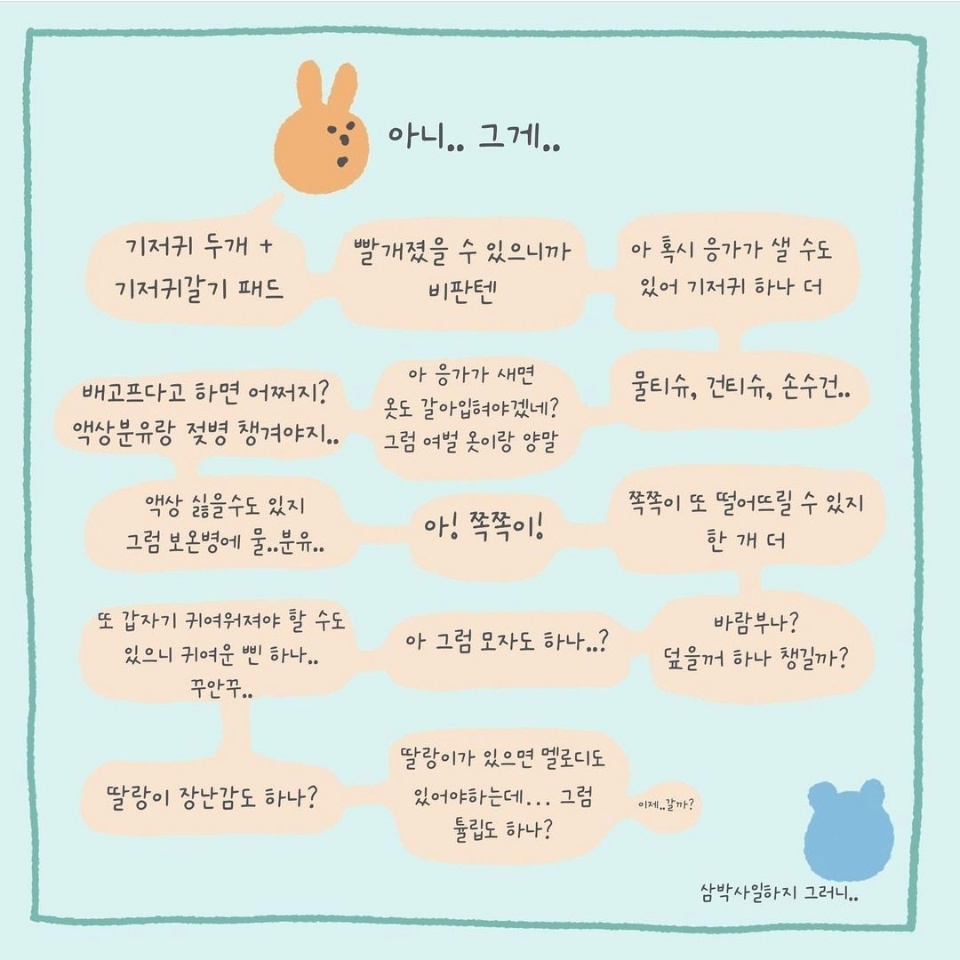 아니.. 그게..
기저귀 두개 +
기저귀갈기 패드
빨개졌을 수 있으니까
비판텐
아 혹시 응가가 샐 수도
있어 기저귀 하나 더
물티슈, 건티슈, 손수건..
아 응가가 새면
옷도 갈아입혀야겠네?
그럼 여벌 옷이랑 양말
배고프다고 하면 어쩌지?
액상분유랑 젖병 챙겨야지..
액상 싫을수도 있지
그럼 보온병에 물..분유..
아! 쪽쪽이!
쪽쪽이 또 떨어뜨릴 수 있지
한 개 더
바람부나?
덮을꺼 하나 챙길까?
아 그럼 모자도 하나..?
또 갑자기 귀여워져야 할 수도
있으니 귀여운 삔 하나..
꾸안꾸..
딸랑이 장난감도 하나?
딸랑이가 있으면 멜로디도
있어야하는데... 그럼
튤립도 하나?
이제..갈까?
삼박사일하지 그러니..